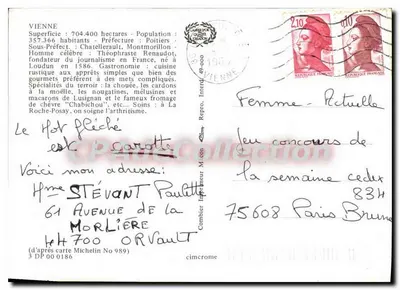 VIENNE
Superficie : 704.400 hectares - Population :
357.366 habitants - Préfecture : Poitiers -
Sous-Préfect. : Chatellerault, Montmorillon -
Homme célèbre : Théophraste Renaudot,
fondateur du journalisme en France, né à
Loudun en 1586. Gastronomie : cuisine
rustique aux apprêts simples que bien des
gourmets préfèrent à des mets compliqués.
Spécialités du terroir : la chouée, les cardons
à la moëlle, les nougatines, mélusines et
macarons de Lusignan et le fameux fromage
de chèvre "Chabichou", etc... Soins : à La
Roche-Posay, on soigne l'arthritisme.
Le Mot fléché
est carotte
Voici mon adresse:
Mme STÉVANT Paulette
61 AVENUE DE LA
MORLIÈRE
44700 ORVAULT
(d'après carte Michelin No 989)
3 DP 00 0186
cimcrome
Combier Imprimeur Macon
VIENNE
2,10
0,10
Femme - Actuelle
Jeu concours de
la semaine cedex
834
75608 Paris Brune
PenteCollection